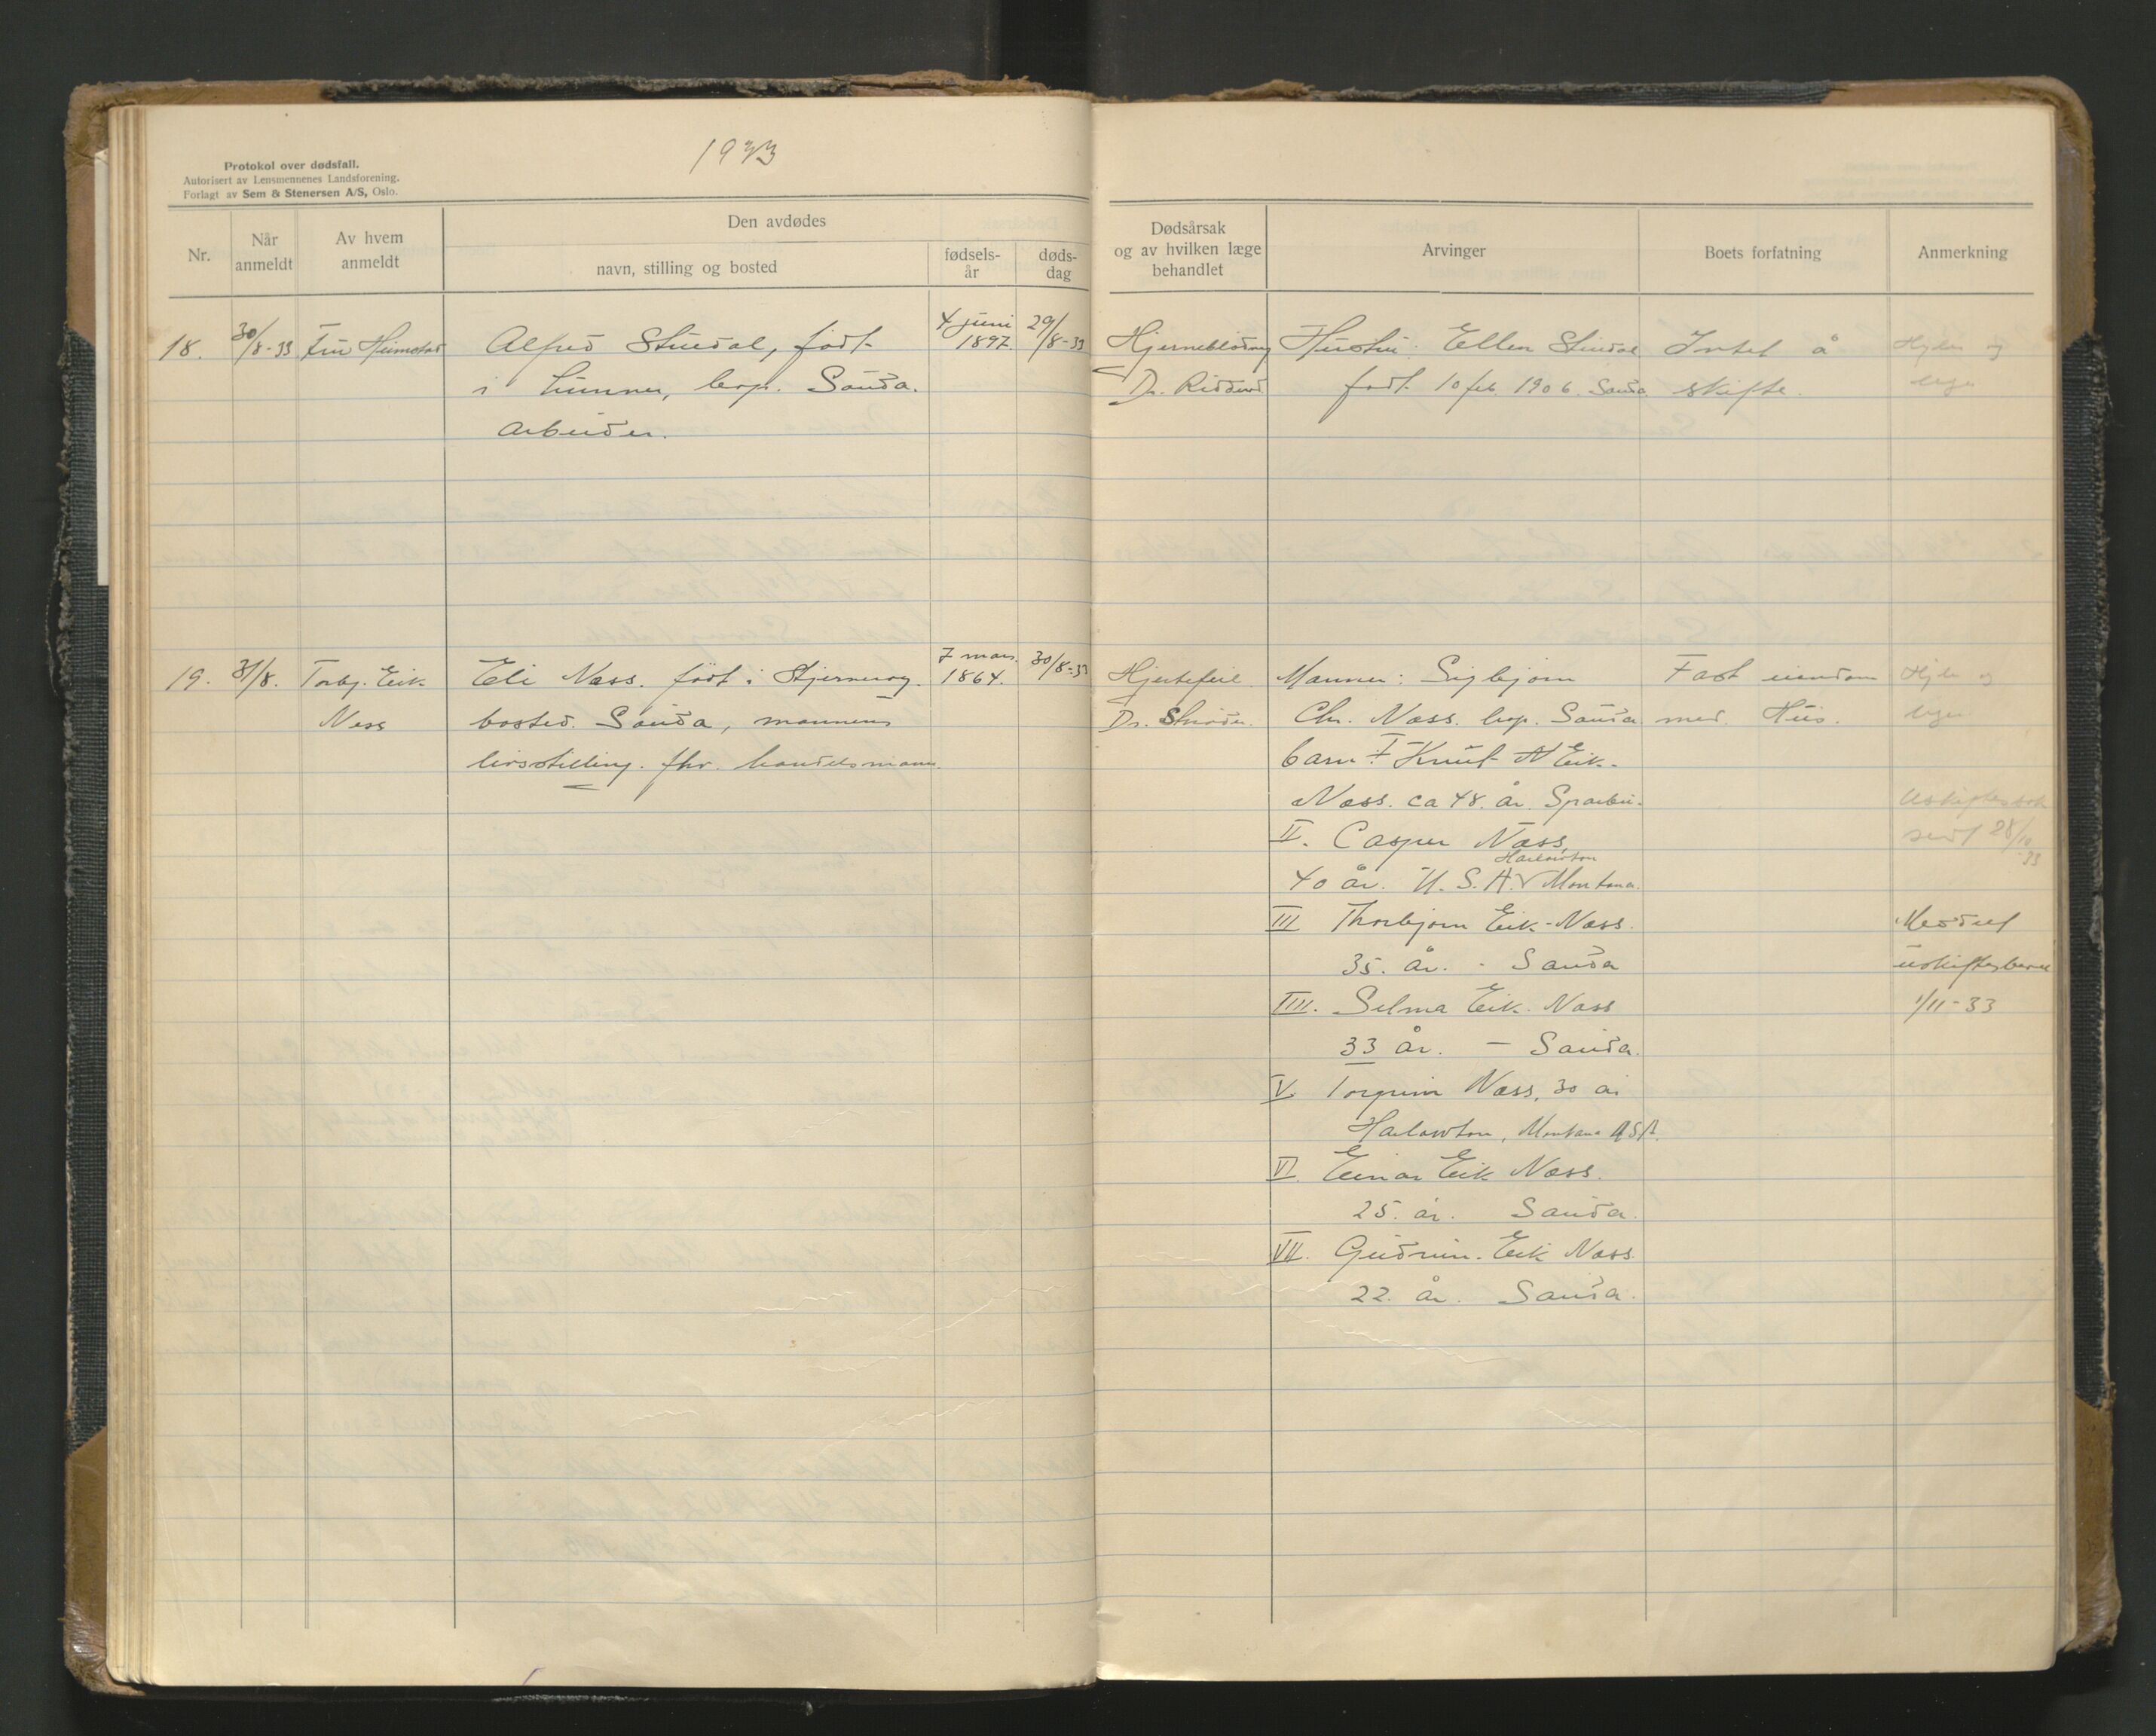 1933
Protokol over dødsfall.
Autorisert av Lensmennenes Landsforening.
Forlagt av Sem & Stenersen A/S, Oslo.
Nr.
Når anmeldt
Av hvem anmeldt
Den avdødes
navn, stilling og bosted
fødsels-år
døds-dag
Dødsårsak
og av hvilken læge
behandlet
Arvinger
Boets forfatning
Anmerkning
18. 30/8-33 Fru Heimstad
Alfred Stuedal, født
i Lunner, bop. Sauda.
Arbeider.
4 juni
1897.
29/8-33
Hjerneblødning
Dr. Ridderv
Hustru: Ellen Stuedal
født 10 feb 1906. Sauda
Intet å
skifte.
19. 31/8. Torbj. Eik
Ness
Eli Næss. født i Stjernerøy.
bosted. Sauda, mannens
livsstilling. fhv. handelsmann.
7 mars.
1864.
30/8-33
Hjertefeil
Dr. Shrøder.
Mannen: Sigbjørn
Chr. Næss. bop. Sauda
barn: I Knut N Eik-
Næss. ca 48. år. Sparbu.
II. Casper Næss,
Harlowton
40 år. U. S. A. v Montana.
III Thorbjørn Eik-Næss.
35. år. - Sauda
IIII. Selma Eik. Næss
33 år. – Sauda.
V. Torgrim Næss, 30 år
Harlowton, Montana USA.
VI. Einar Eik Næss.
25. år. Sauda.
VII. Gudrun. Eik Næss.
22. år. Sauda.
Fast eiendom
med. Hus.
sendt 28/10-33
Meddelt
uskiftesbevil
1/11-33